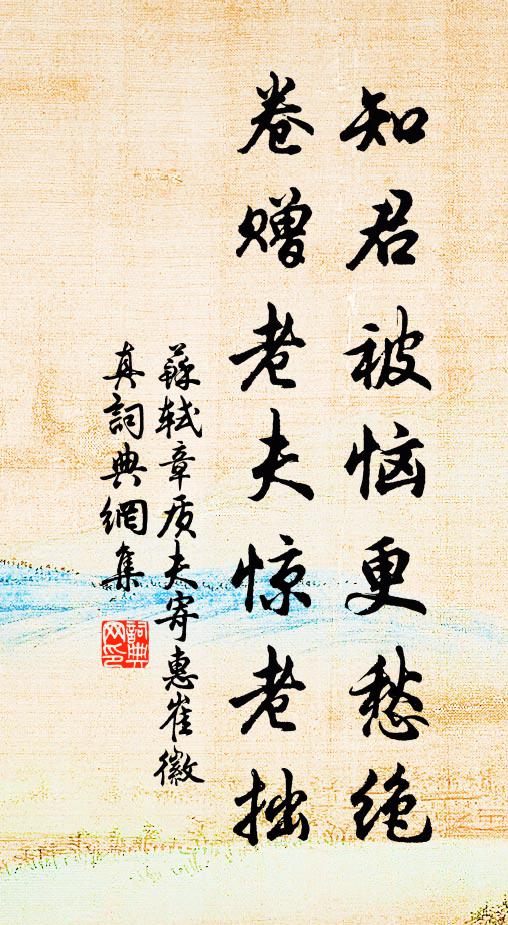 知君被恼更愁绝
卷赠老夫惊老拙
蘇轼章质夫寄惠崔徽
真詞典網集
詞典网印